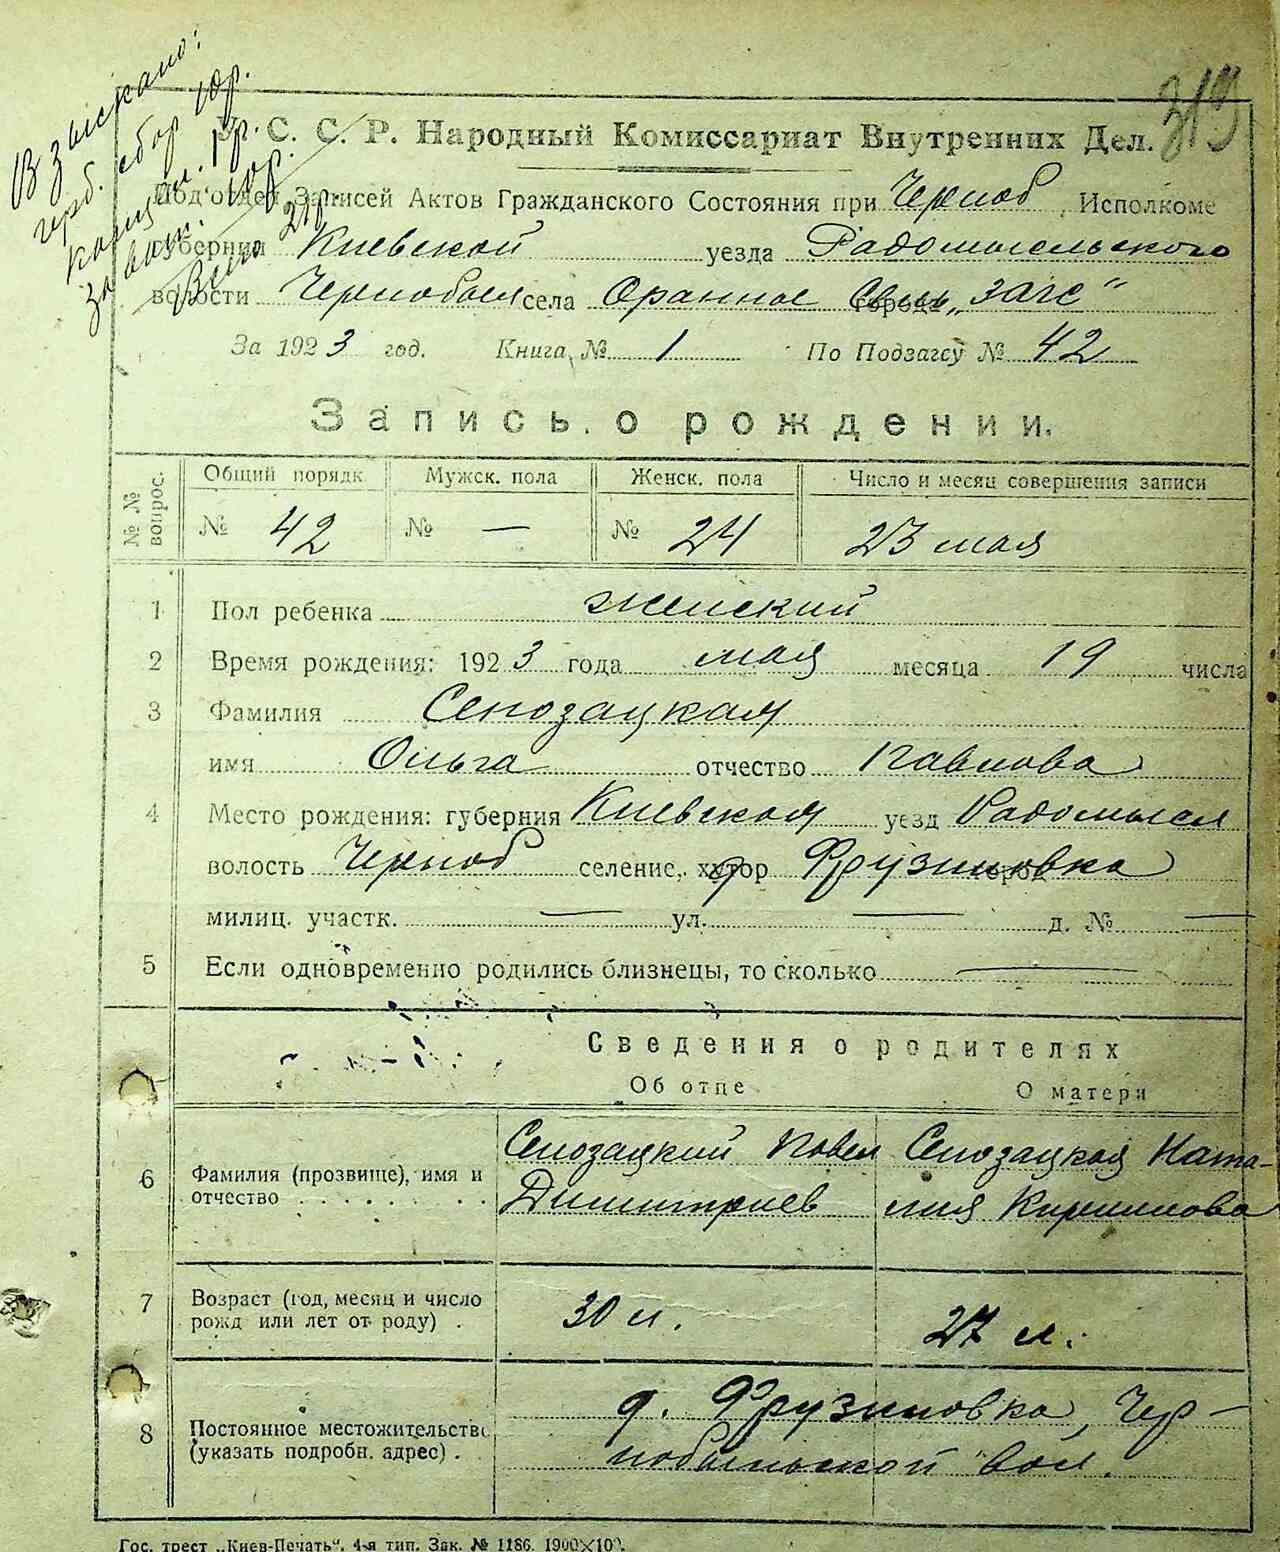 319
Взыскано:
герб. сбор 10р.
канцел. 1р.
за бланк. 10р.
Всего 21р.
У. С. С. Р. Народный Комиссариат Внутренних Дел.
Подотдел Записей Актов Гражданского Состояния при Черноб. Исполкоме
губернии Киевской уезда Радомысельского
волости Чернобыл села Оранное города „Загс“
За 1923 год. Книга № 1 По Подзагсу № 42
Запись о рождении.
№ № вопрос. Общий порядк. Мужск. пола Женск. пола Число и месяц совершения записи
№ 42 № — № 24 23 мая
1 Пол ребенка женский
2 Время рождения: 1923 года мая месяца 19 числа
3 Фамилия Сенозацкая
имя Ольга отчество Павлова
4 Место рождения: губерния Киевская уезд Радомысл
волость Черноб селение, хутор д Фрузиновка
милиц. участк. — ул. — д. № —
5 Если одновременно родились близнецы, то сколько —
Сведения о родителях
Об отце О матери
6 Фамилия (прозвище), имя и отчество Сенозацкий Павел Димитриев Сенозацкая Наталия Кириллова
7 Возраст (год, месяц и число рожд или лет от роду) . 30 л. 27 л.
8 Постоянное местожительство (указать подробн. адрес) . д. Фрузиновка, Чер-
нобыльской вол.
Гос. трест „Киев-Печать“. 4-я тип. Зак. № 1186. 1900×100.